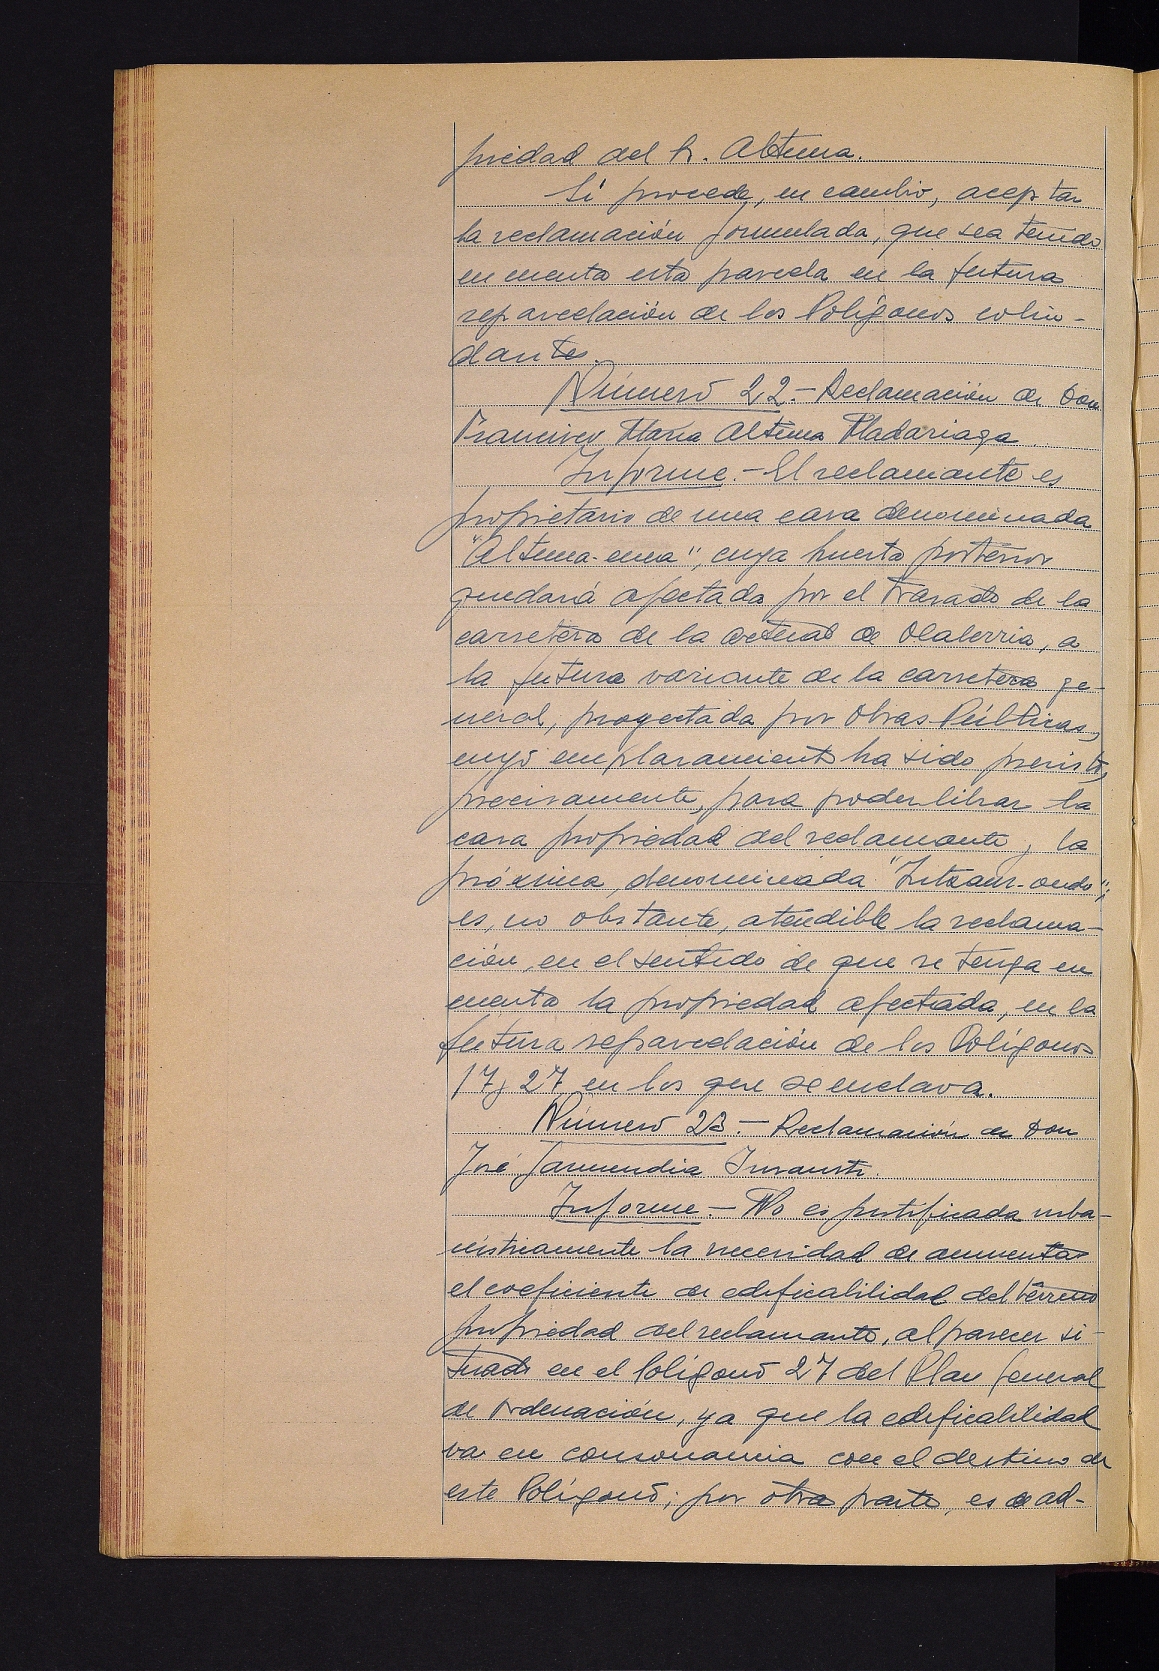 piedad del Sr. Altuna.
Sí procede, en cambio, aceptar
la reclamación formulada, que sea tenido
en cuenta esta parcela en la futura
reparcelación de los Polígonos colin-
dantes.
Número 22.- Reclamación de Don
Francisco María Altuna Madariaga
Informe.- El reclamante es
propietario de una casa denominada
"Altuna-enea", cuya huerta posterior
quedará afectada por el trazado de la
carretera de la actual de Olaberria, a
la futura variante de la carretera ge-
neral, proyectada por Obras Públicas,
cuyo emplazamiento ha sido previsto,
precisamente, para poder librar la
casa propiedad del reclamante y la
próxima, denominada "Intxaur-ondo";
es, no obstante, atendible la reclama-
ción, en el sentido de que se tenga en
cuenta la propiedad afectada, en la
futura reparcelación de los Polígonos
17 y 27 en los que se enclava.
Número 23.- Reclamación de Don
José Garmendia
Informe.- No es justificada urba-
nísticamente la necesidad de aumentar
el coeficiente de edificabilidad del terreno
propiedad del reclamante, al parecer si-
tuado en el Polígono 27 del Plan General
de Ordenación, ya que la edificabilidad
va en consonancia con el destino de
este Polígono; por otra parte, es de ad-